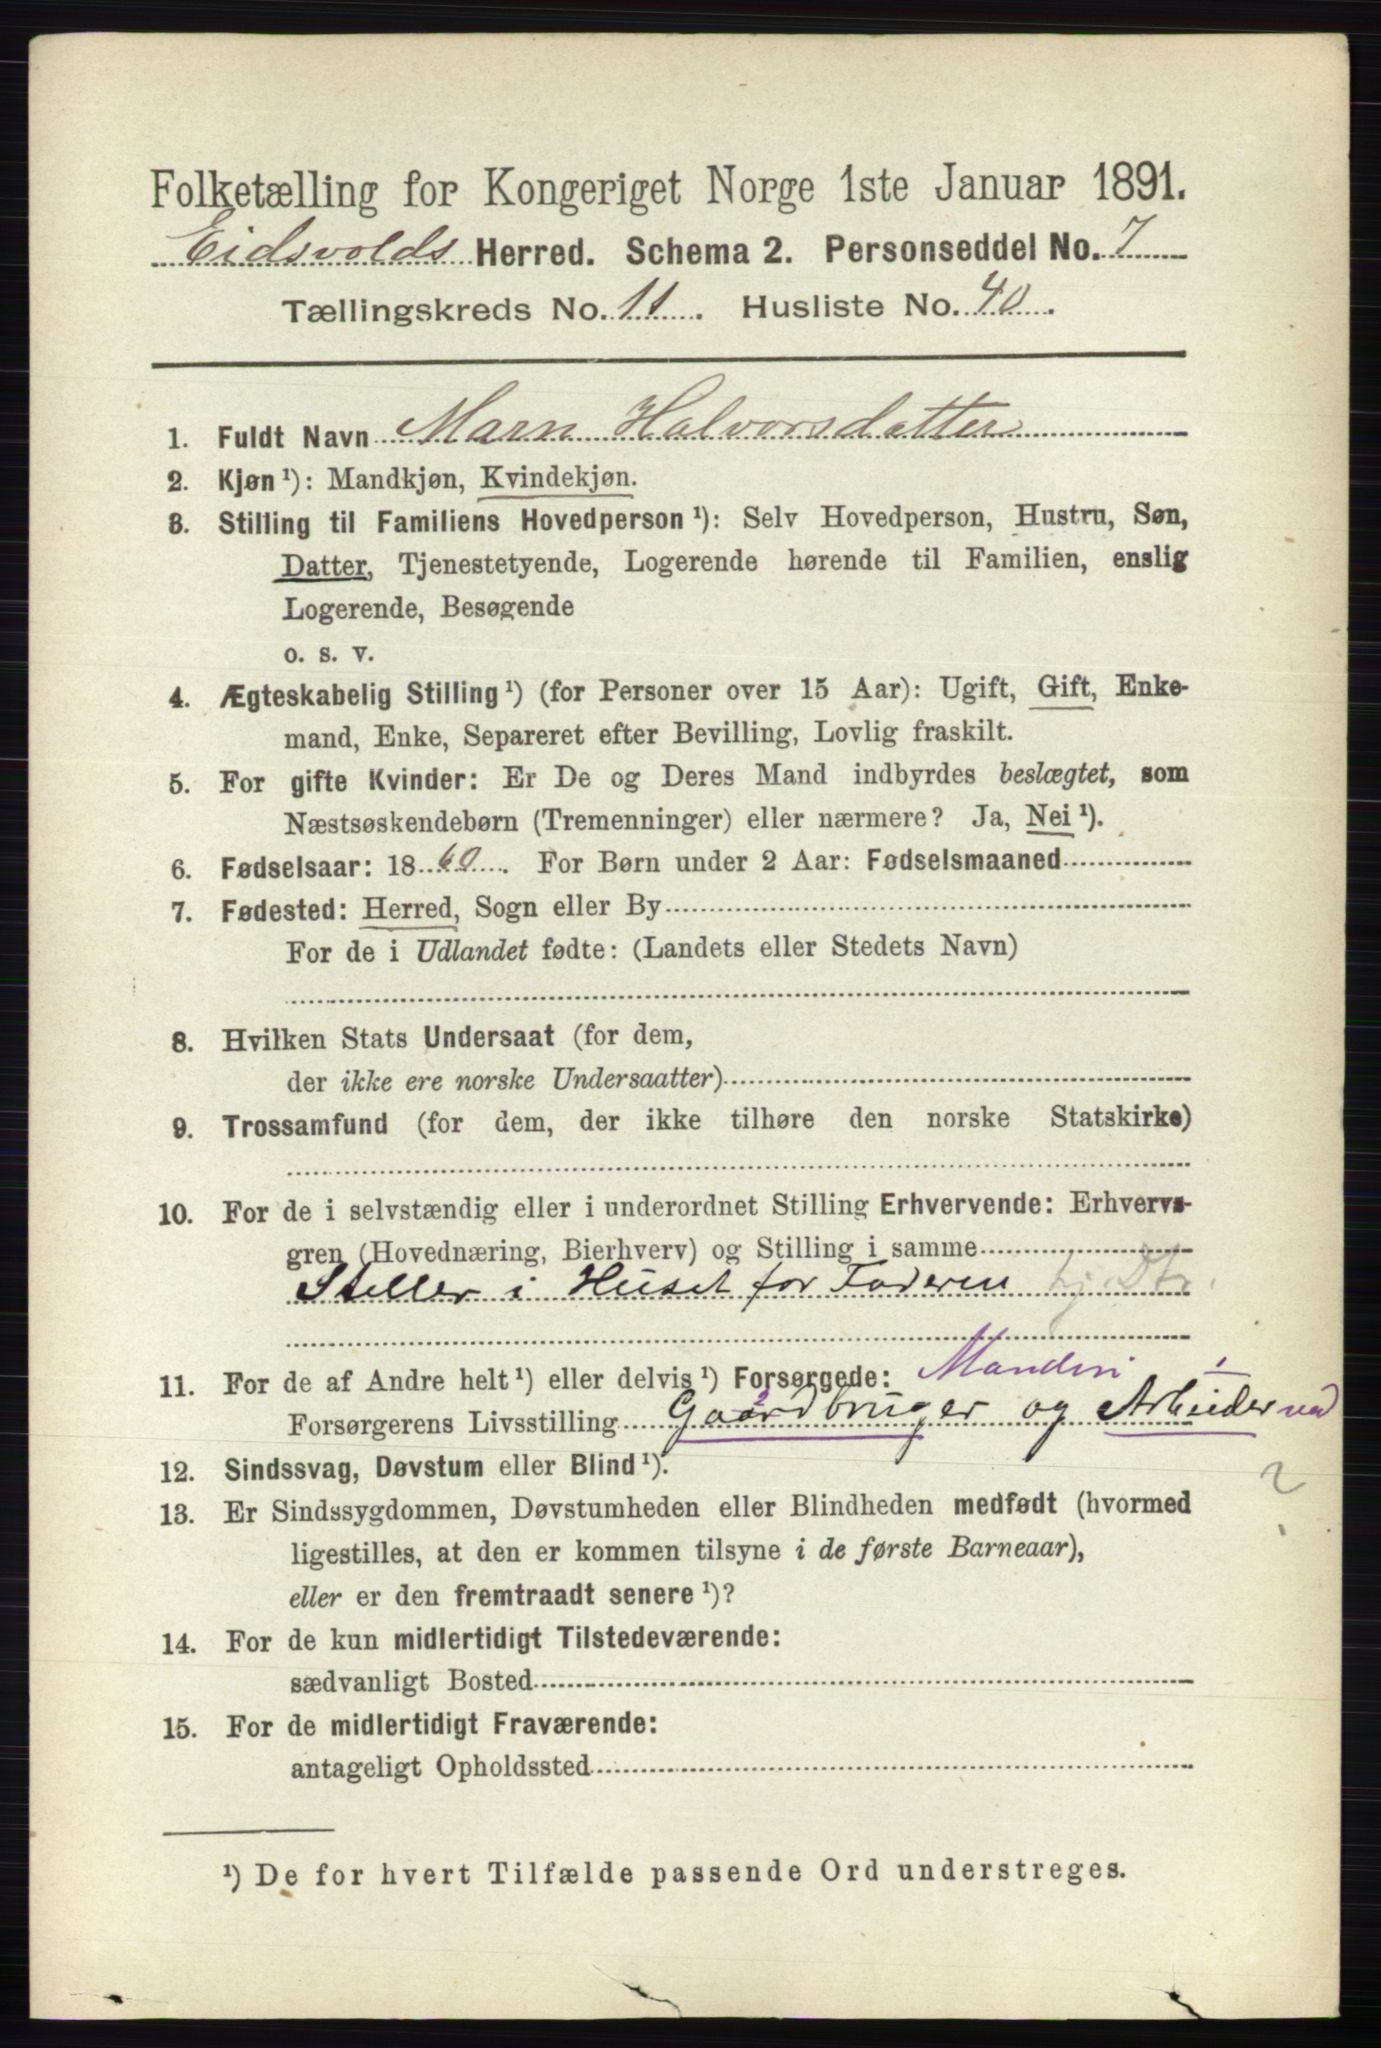 Folketælling for Kongeriget Norge 1ste Januar 1891.
Eidsvolds Herred. Schema 2. Personseddel No. 7
Tællingskreds No. 11. Husliste No. 40.
1. Fuldt Navn Marn Halvorsdatter
2. Kjøn¹): Mandkjøn, Kvindekjøn.
3. Stilling til Familiens Hovedperson¹): Selv Hovedperson, Hustru, Søn,
Datter, Tjenestetyende, Logerende hørende til Familien, enslig
Logerende, Besøgende
o. s. v.
4. Ægteskabelig Stilling¹) (for Personer over 15 Aar): Ugift, Gift, Enke-
mand, Enke, Separeret efter Bevilling, Lovlig fraskilt.
5. For gifte Kvinder: Er De og Deres Mand indbyrdes beslægtet, som
Næstsøskendebørn (Tremenninger) eller nærmere? Ja, Nei¹).
6. Fødselsaar: 1860. For Børn under 2 Aar: Fødselsmaaned
7. Fødested: Herred, Sogn eller By
For de i Udlandet fødte: (Landets eller Stedets Navn)
8. Hvilken Stats Undersaat (for dem,
der ikke ere norske Undersaatter)
9. Trossamfund (for dem, der ikke tilhøre den norske Statskirke)
10. For de i selvstændig eller i underordnet Stilling Erhvervende: Erhvervs-
gren (Hovednæring, Bierhverv) og Stilling i samme
Steller i Huset for Faderen hj. Dtr.
11. For de af Andre helt¹) eller delvis¹) Forsørgede: Manden 1
Forsørgerens Livsstilling 2 Gaardbruger og Arbeider ved
12. Sindssvag, Døvstum eller Blind¹). ?
13. Er Sindssygdommen, Døvstumheden eller Blindheden medfødt (hvormed
ligestilles, at den er kommen tilsyne i de første Barneaar),
eller er den fremtraadt senere¹)?
14. For de kun midlertidigt Tilstedeværende:
sædvanligt Bosted
15. For de midlertidigt Fraværende:
antageligt Opholdssted
¹) De for hvert Tilfælde passende Ord understreges.